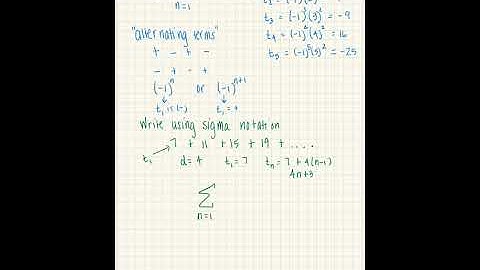 n=1
t₃ = (-1)³(3)² = -9
t₄ = (-1)⁴(4)² = 16
t₅ = (-1)⁵(5)² = -25
"alternating terms"
+ - + -
- + - +
(-1)ⁿ or (-1)ⁿ⁺¹
t₁ is (-) t₁ = +
Write using sigma notation
7 + 11 + 15 + 19 + ....
t₁ d=4 t₁=7 tₙ = 7 + 4(n-1)
4n+3
Σ
n=1